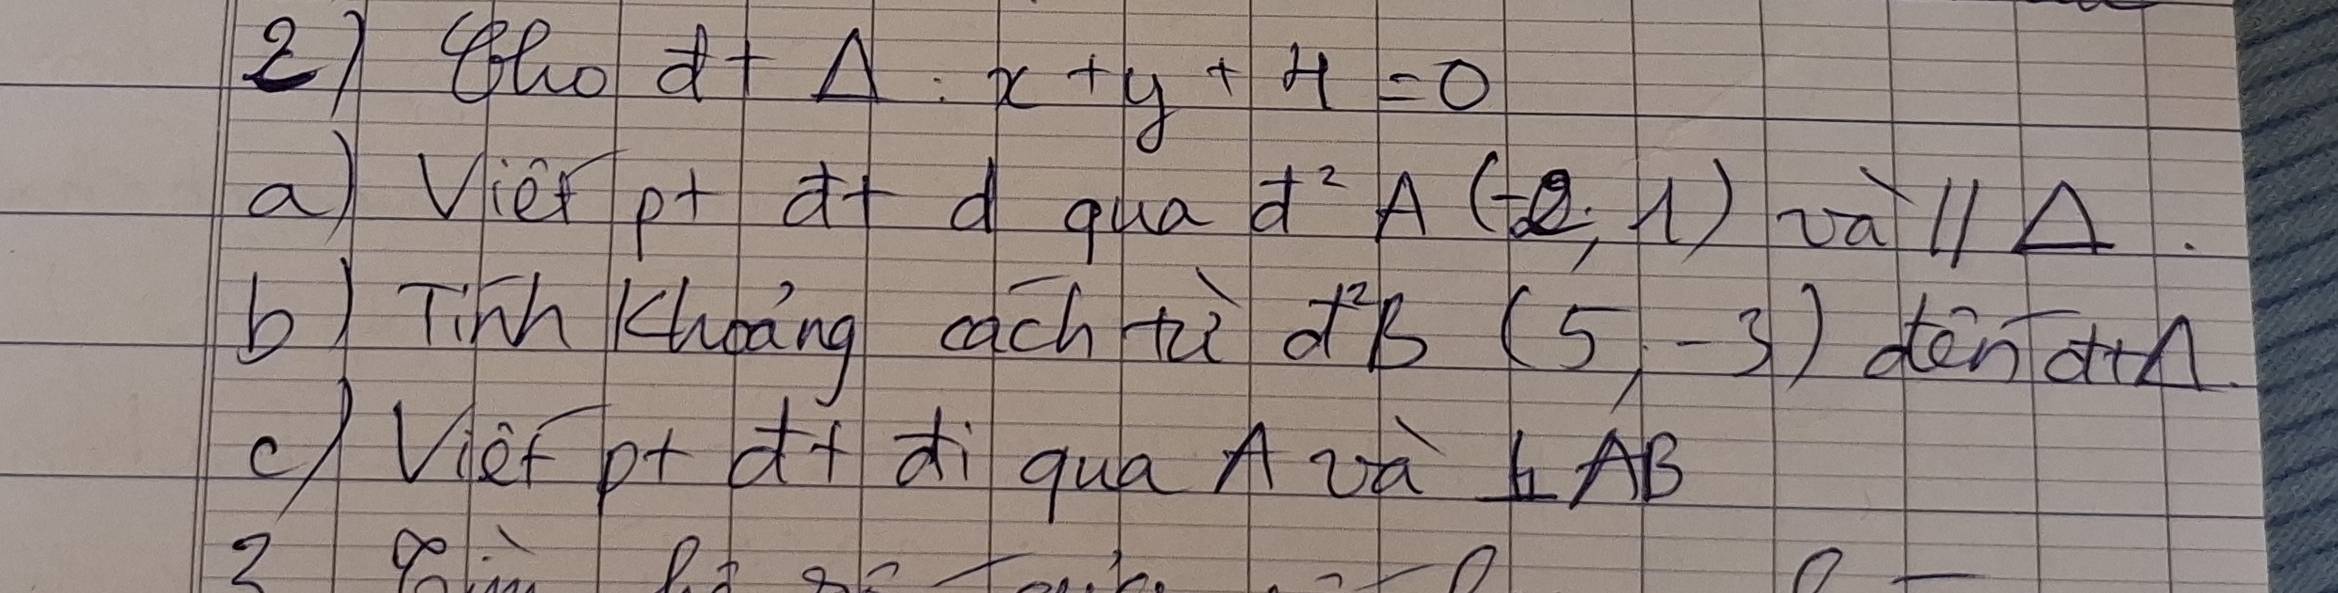 2) Cho đt Δ : x + y + 4 = 0
a) Viết pt đt d qua đ² A (-2; 1) và // Δ.
b) Tính khoảng cách từ đ²B (5; -3) đến đt Δ.
c) Viết pt đt đi qua A và ⊥ AB
3 Tìm